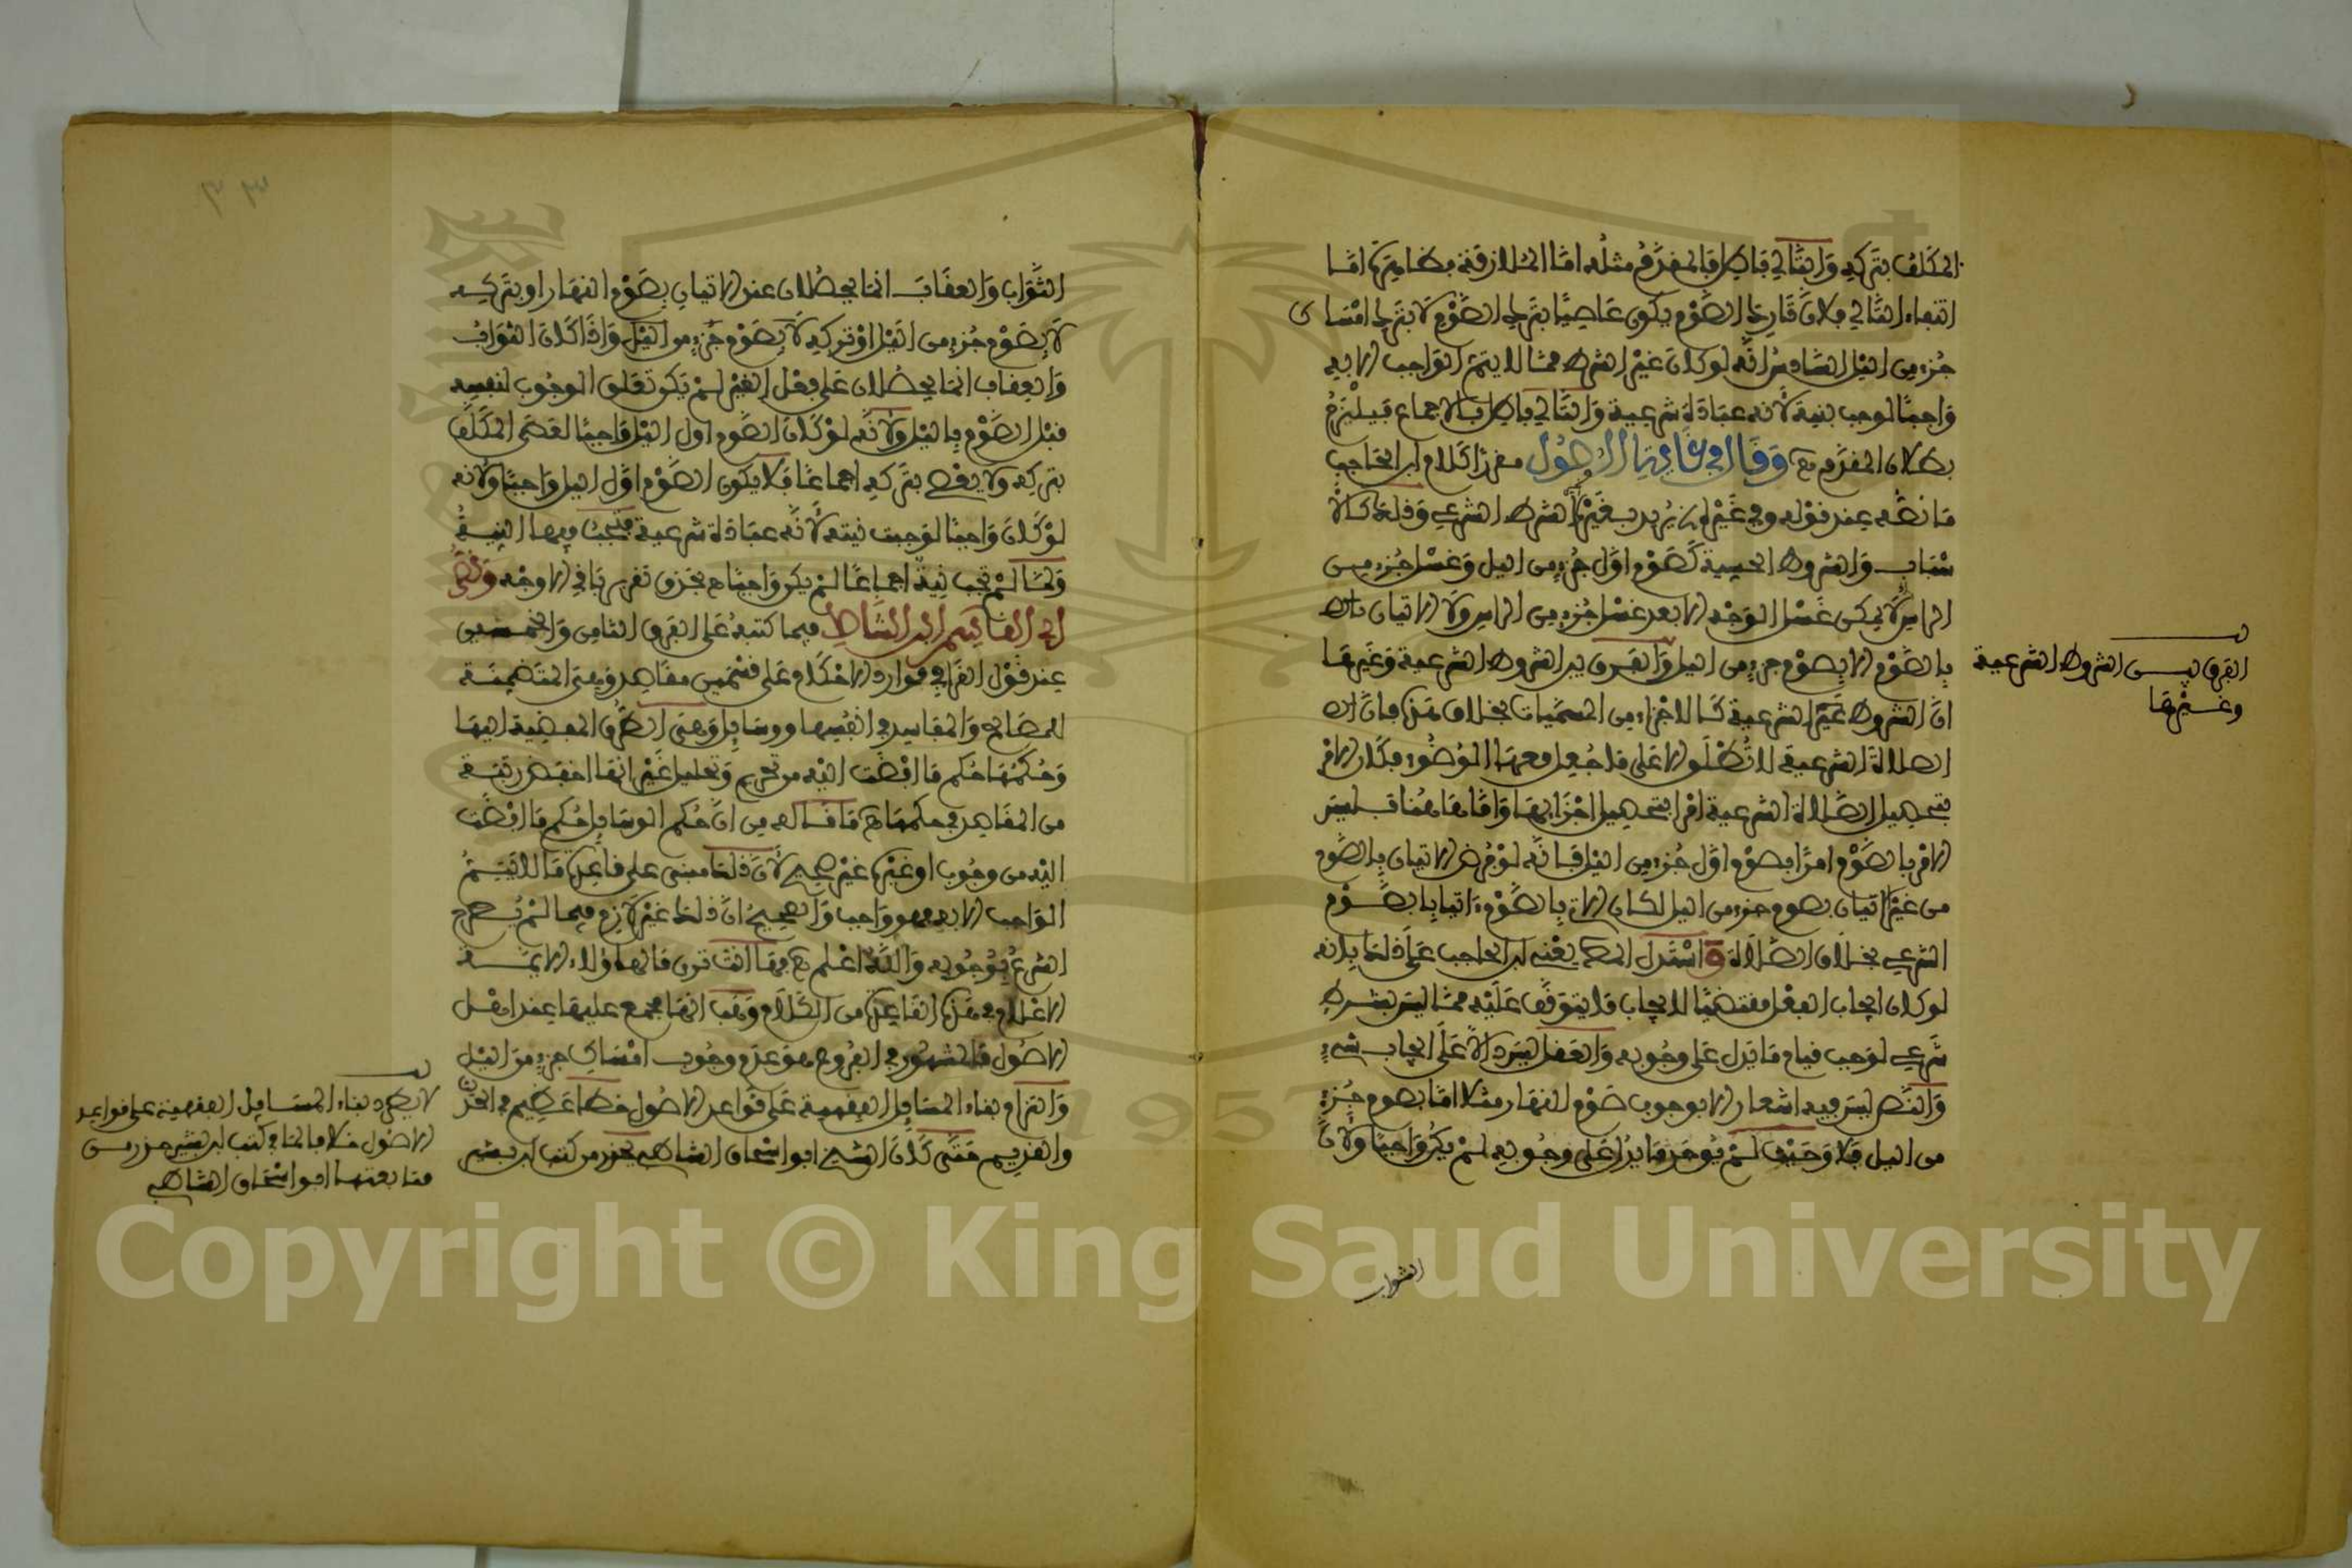 المكلف بتركه والتالي باطل فالمقدم مثله اما الملازمة فظاهرة اما
انتفاء التالي فلان تارك الصوم يكون عاصيا بترك الصوم لا بترك امساك
جزء من اليل السادس انه لو كان غير الشرط مما لا يتم الواجب الا به
واجبا لوجب نيته لانه عبادة شرعية والتالي باطل بالاجماع فيلزم
بطلان المقدم هـ وقال في غاية الاصول مقررا كلام ابن الحاجب
ما نصه عند قوله وفي غيره يريد بغير الشرط الشرعي وذلك كالا
سباب والشروط الحسية كصوم اول جزء من اليل وغسل جزء من
الراس لا يمكن غسل الوجه الا بعد غسل جزء من الراس ولا الاتيان
بالصوم الا بصوم جزء من اليل والفرق بين الشروط الشرعية وغيرها
ان الشروط غير الشرعية كالاجزاء من المسميات بخلاف هذا فان
الصلاة الشرعية لا تطلق الا على ما جعل معها الوضوء فكان الامر
بتحصيل الصلاة الشرعية امرا بتحصيل اجزايها واما هاهنا فليس
الامر بالصوم امرا بصوم اول جزء من اليل فانه لو فرض الاتيان بالصوم
من غير اتيان بصوم جزء من اليل لكان الات بالصوم ءاتيا بالصوم
الشرعي بخلاف الصلاة واستدل المص يعني ابن الحاجب على ذلك بانه
لو كان ايجاب الفعل مقتضيا لايجاب ما يتوقف عليه مما ليس بشرط
شرعي لوجب قيام ما يدل على وجوبه والعقل ليس دالا على ايجاب شيء
والنص ليس فيه اشعار الا بوجوب صوم النهار مثلا اما بصوم جزء
من اليل فلا وحيث لم يوجد ما يدل على وجوبه لم يكن واجبا ولان
الثواب
الفرق بين الشروط الشرعية
وغيرها
٣٣
الثواب والعقاب انما يحصلان عند الاتيان بصوم النهار او بتركه
لا بصوم جزء من اليل او تركه لا بصوم جزء من اليل واذا كان الثواب
والعقاب انما يحصلان على فعل الغير لم يكن تعلق الوجوب لنفسه
قبل الصوم باليل ولانه لو كان الصوم اول اليل واجبا لعصى المكلف
بتركه ولا يعصى بتركه اجماعا فلا يكون الصوم اول اليل واجبا ولانه
لو كان واجبا لوجبت نيته لانه عبادة شرعية فتجب فيها النية
ولما لم تجب نية اجماعا لم يكن واجبا هـ بحذف تقرير باقي الاوجه ونص
ابي القاسم ابن الشاط فيما كتبه على الفرق الثامن والخمسين
عند قول القرافي موارد الاحكام على قسمين مقاصد وهي المتضمنة
للمصالح والمفاسد في انفسها ووسايل وهي الطرق المفضية اليها
وحكمها حكم ما افضت اليه من تحريم وتحليل غير انها اخفض رتبة
من المقاصد في حكمها هـ ما قاله من ان حكم الوسايل حكم ما افضت
اليه من وجوب او غيره غير صحيح لان ذلك مبني على قاعدة ما لا يتم
الواجب الا به فهو واجب والصحيح ان ذلك غير لازم فيما لم يصرح
الشرع بوجوبه والله اعلم هـ فها انت ترى ما لهاؤلاء الايمة
الاعلام في هذه القاعدة من الكلام وهب انها مجمع عليها عند اهل
الاصول فالمشهور في الفروع هو عدم وجوب امساك جزء من اليل
والتزام بناء المسايل الفقهية على قواعد الاصول خطا عظيم في الحديث
والقديم حتى كان الشيخ ابو اسحاق الشاطبي يحذر من كتب ابن بشير
لا يطرد بناء المسايل الفقهية على قواعد
الاصول مثلا فالمذاكتب ابن بشير حذر من
متابعتها ابو اسحاق الشاطبي
Copyright © King Saud University
1957